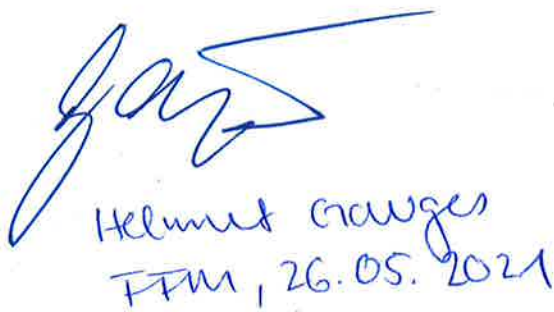 Helmut Gauges
FFM, 26.05.2021